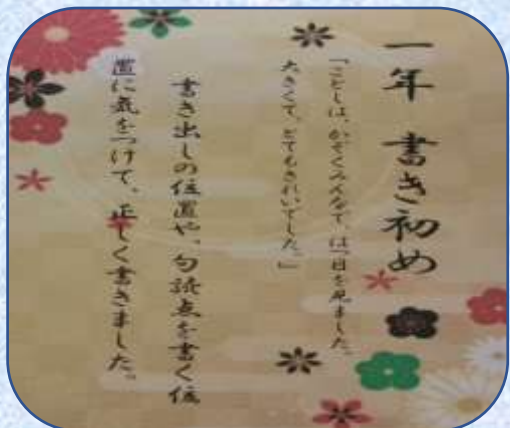 一年 書き初め
「ことしは、かぞくみんなで、は一日を見ました。
大きくて、とてもきれいでした。」
書き出しの位置や、句読点を書く位
置に気をつけて、正しく書きました。